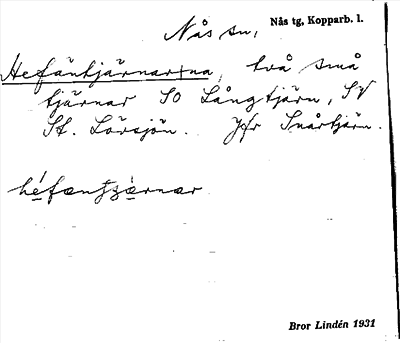 Nås sn,
Nås tg, Kopparb. l.
Hefäntjärnar,na, två små
tjärnar SO Långtjärn, SV
St. Lövsjön. Jfr Snårtjärn.
Bror Lindén 1931